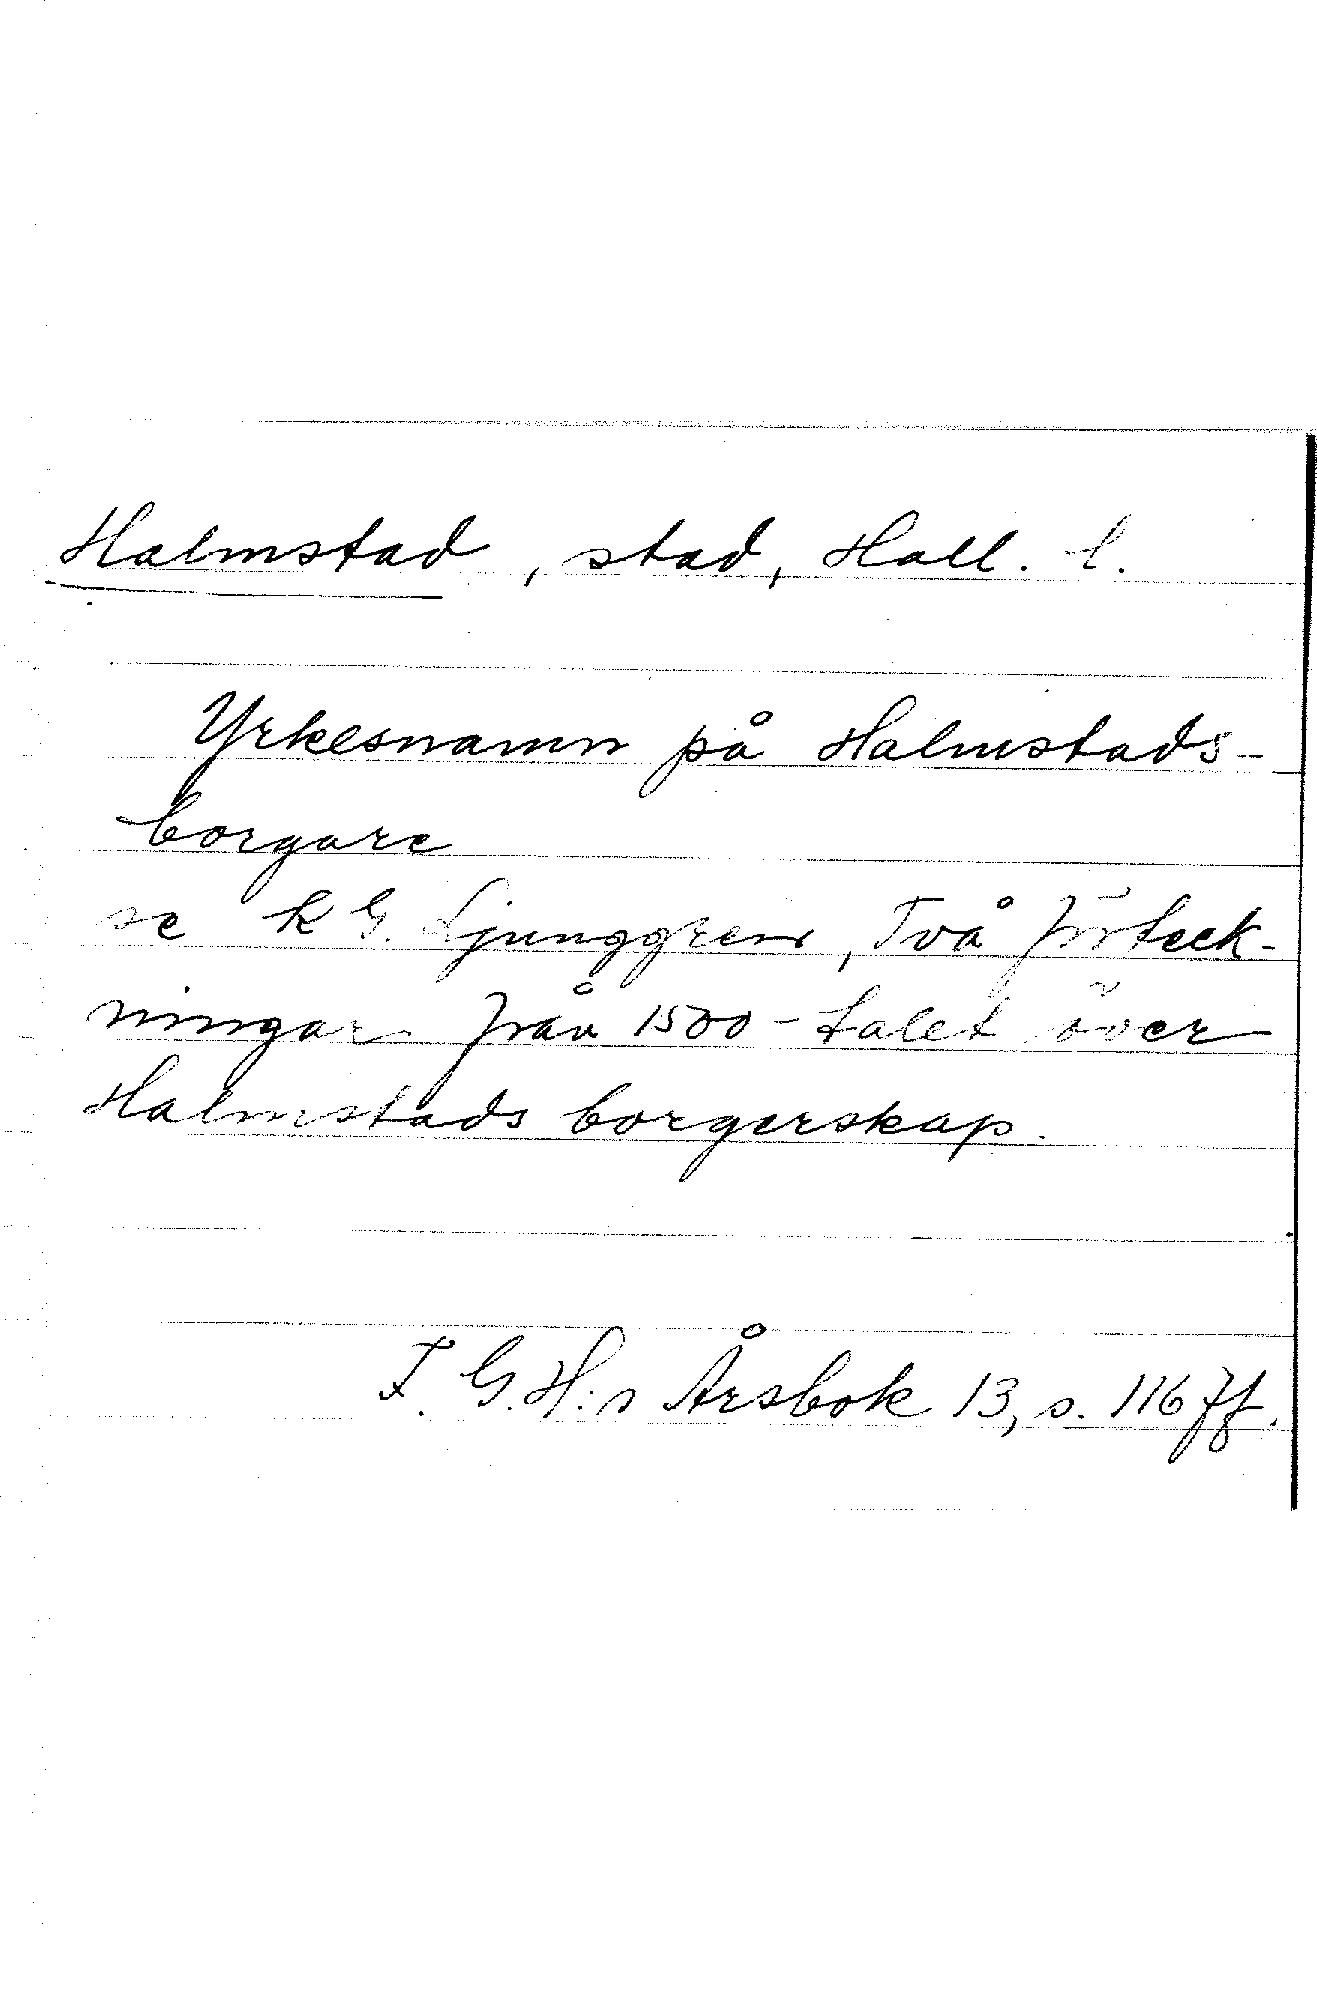 Halmstad, stad, Hall. l.
Yrkesnamn på Halmstads-
borgare
se K G. Ljunggren, Två förteck-
ningar från 1500-talet över
Halmstads borgerskap.
F. G. H:s Årsbok 13, s. 116 ff.